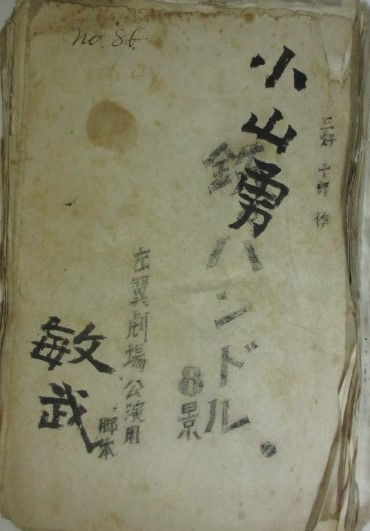 三好十郎作
小山勇
鉄ハンドル。
8景
左翼劇場公演用
脚本
敏武